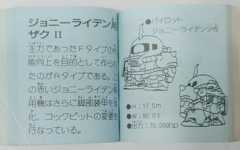 ジョニーライデン用
ザク II
主力であったFタイプの
能向上を目的として作られ
たのがRタイプである。
の赤いジョニーライデン
用機はさらに脚部装甲を
化、コックピットの変更
行なっている。
●パイロット
ジョニーライデン
●H：17.5m
●W：
●出力：